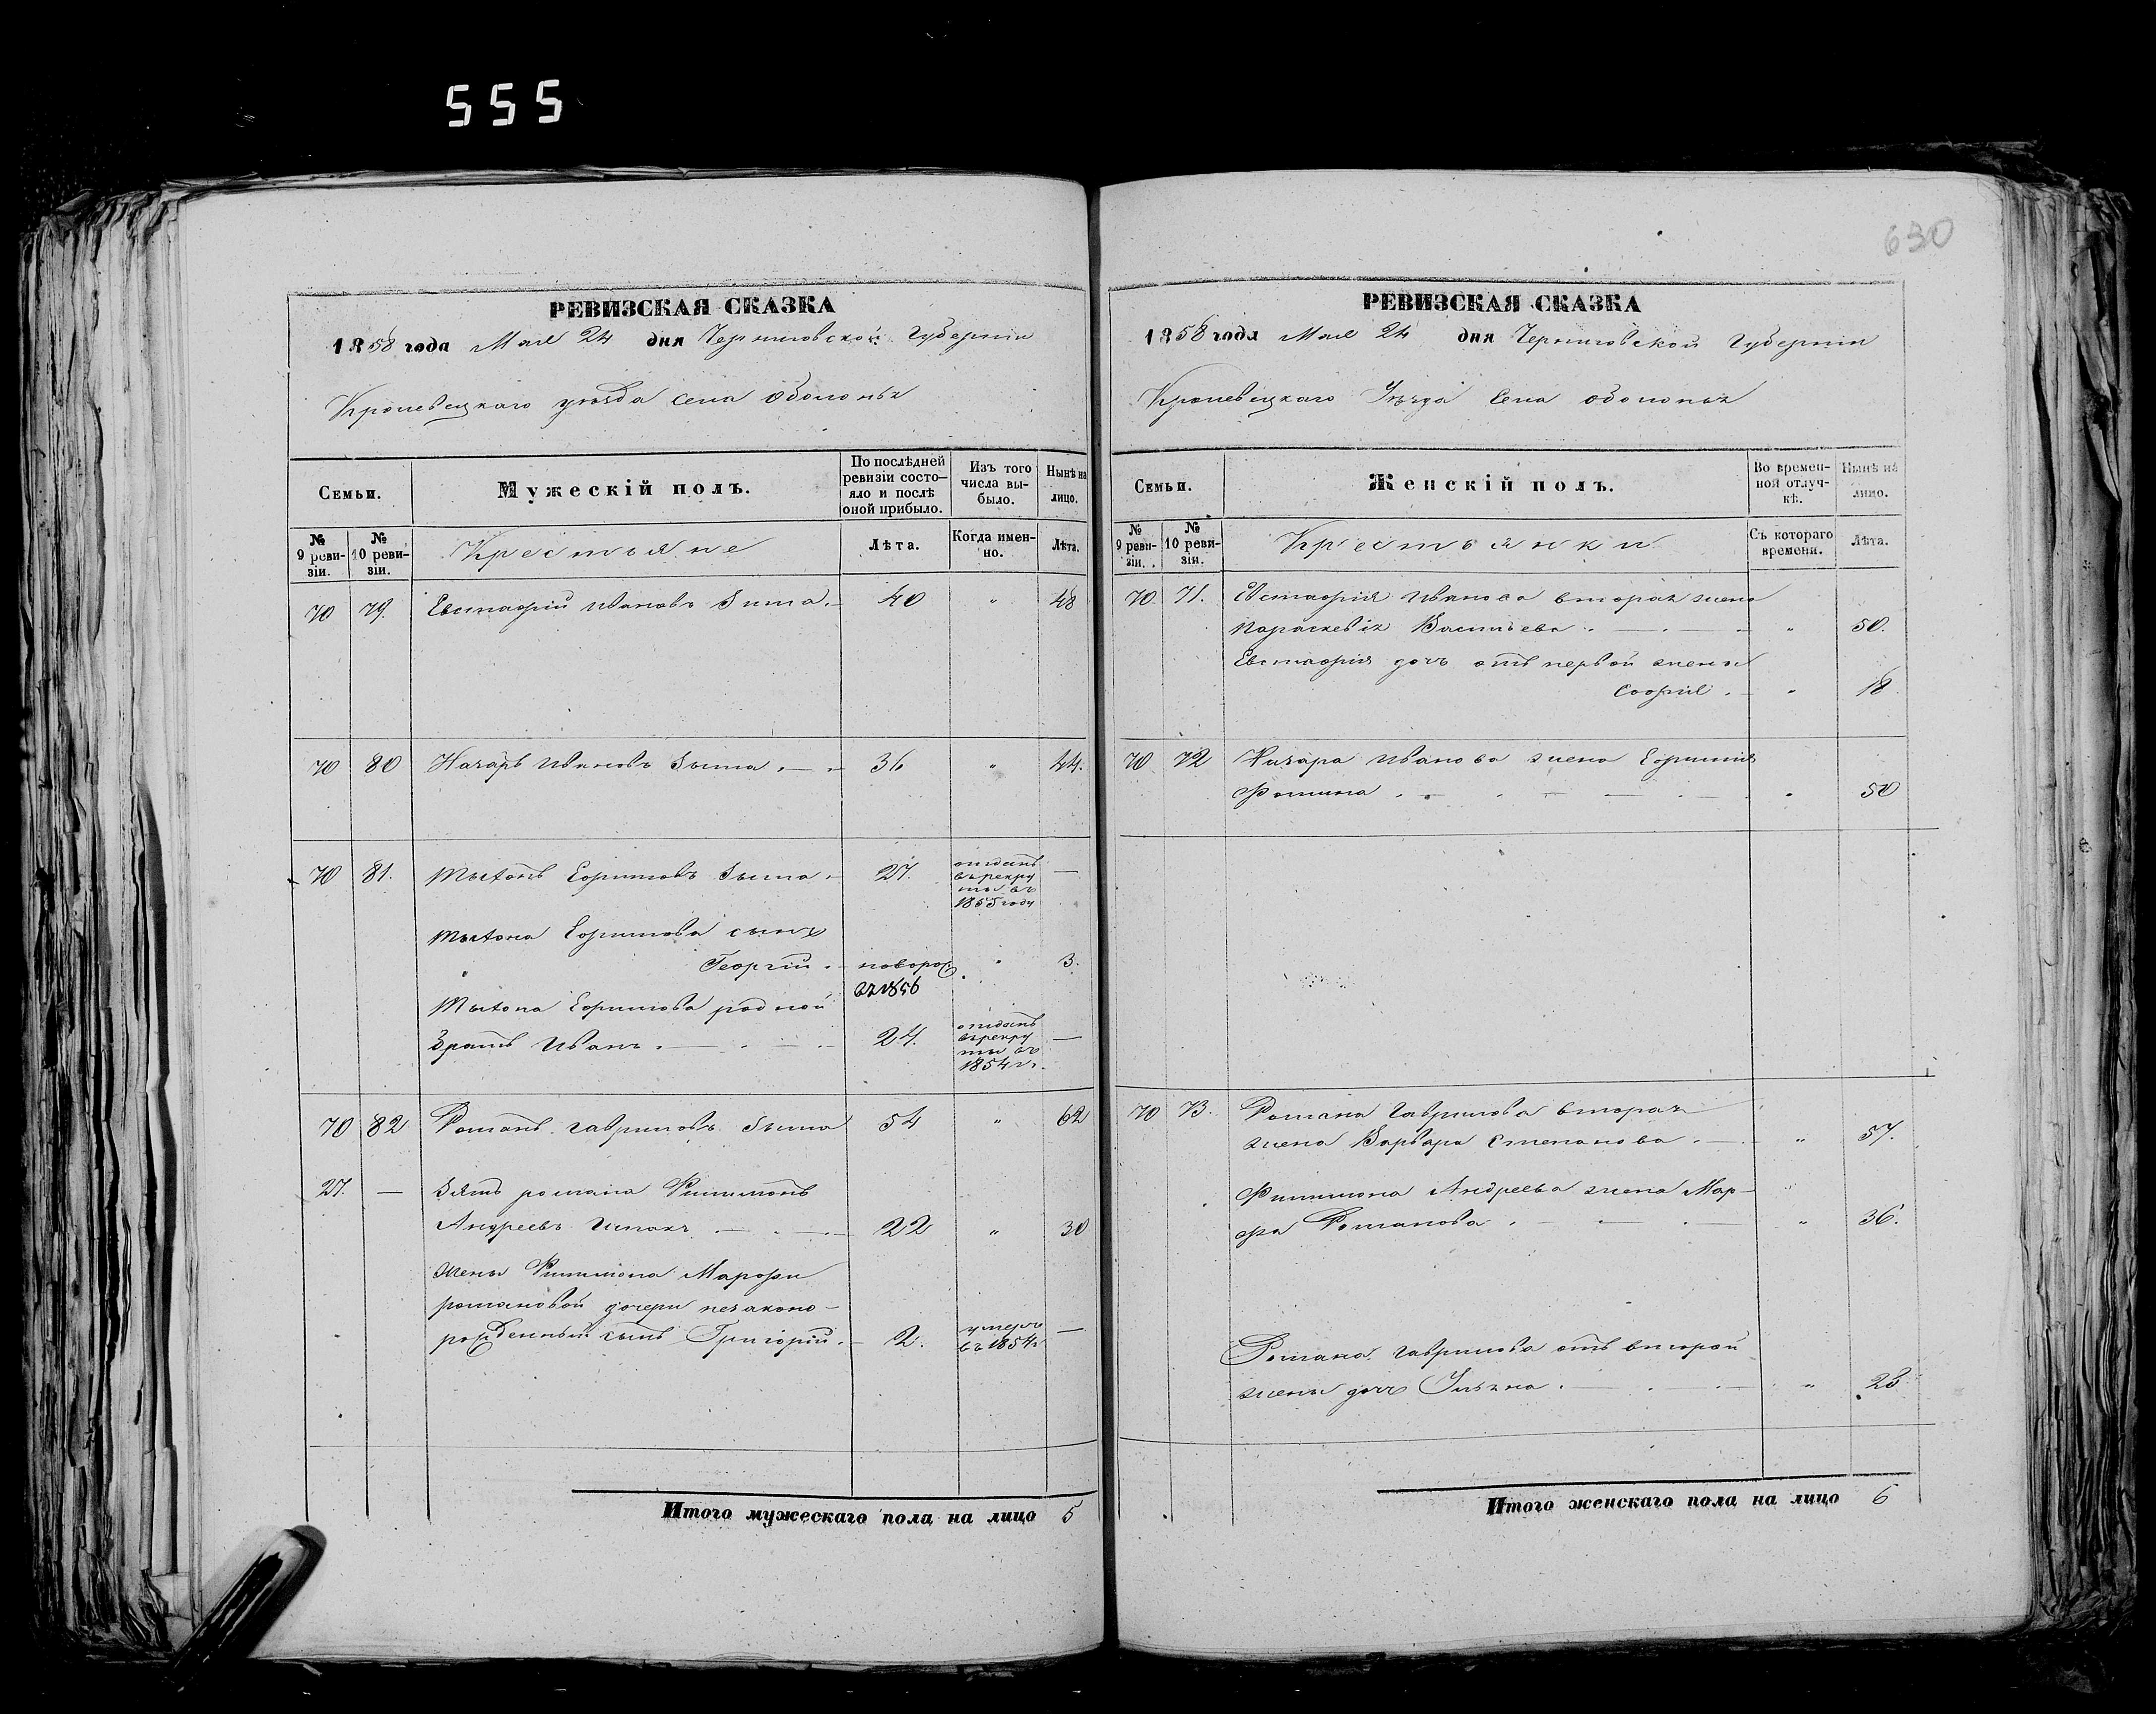 555
630
РЕВИЗСКАЯ СКАЗКА
1858 года Мая 24 дня Черниговской Губернии
Кролевецкаго уезда села Оболонья
Семьи.
Мужескій полъ.
По послѣдней ревизіи состо-
яло и послѣ
оной прибыло.
Изъ того
числа вы-
было.
Нынѣ на
лицо.
№ 9 реви-
зіи.
№ 10 реви-
зіи.
Крестьяне
Лѣта.
Когда имен-
но.
Лѣта.
70 79. Евстафій Ивановъ Зыма. 40 " 48
70 80 Назаръ Ивановъ Зыма. 36 " 44.
70 81. Ефимовъ Зыма. 27. отданъ
въ рекру
ты въ
1855 году —
Ефимова сынъ
Георгій. новорож " 3.
въ 1856
Ефимова родной
братъ Иванъ. 24. отданъ
въ рекру
ты въ
1854 г. —
70 82 Романъ Гавриловъ Зыма 54 " 62
27. — Зять Романа Филимонъ
Андреевъ 22 " 30
жены Филимона Марфы
Романовой дочери незаконо-
рожденный сынъ Григорій. 2. умеръ
въ 1854 г. —
Итого мужескаго пола на лицо 5
РЕВИЗСКАЯ СКАЗКА
1858 года Мая 24 дня Черниговской Губернии
Кролевецкаго Уезда Села Оболонья
Семьи.
Женскій полъ.
Во времен-
ной отлуч-
кѣ.
Нынѣ на
лицо.
№ 9 реви-
зіи.
№ 10 реви-
зіи.
Крестьянки
Съ котораго
времени.
Лѣта.
70. 71. Евстафія Иванова вторая жена
Параскевія Васильева. " 50.
Евстафія дочь отъ первой жены
Софія. " 18
70. 72 Назара Иванова жена Ефимія
Фомина. " 50
70 73. Романа Гаврилова вторая
жена Варвара Степанова. " 57.
Филимона Андреева жена Мар-
фа Романова. " 36.
Романа Гаврилова отъ второй
жены дочь Ульяна. " 28
Итого женскаго пола на лицо 6